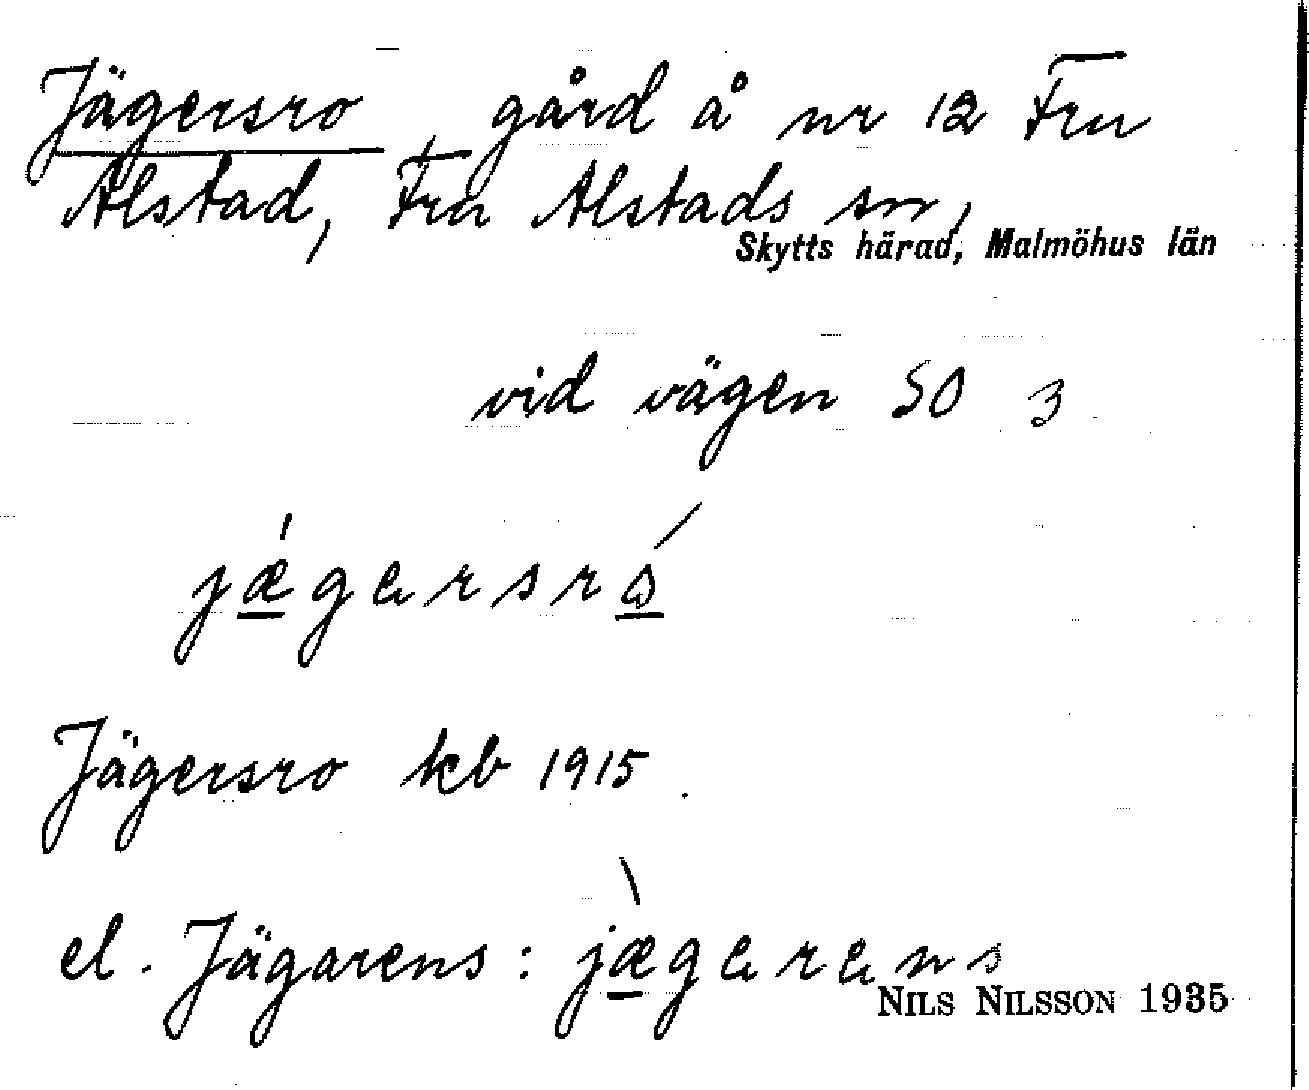 Jägersro, gård å nr 12 Fru
Alstad, Fru Alstads sn,
Skytts härad, Malmöhus län
vid vägen SO 3
jǽgersró
Jägersro kb 1915.
el. Jägarens: jæ̀gerens
NILS NILSSON 1935